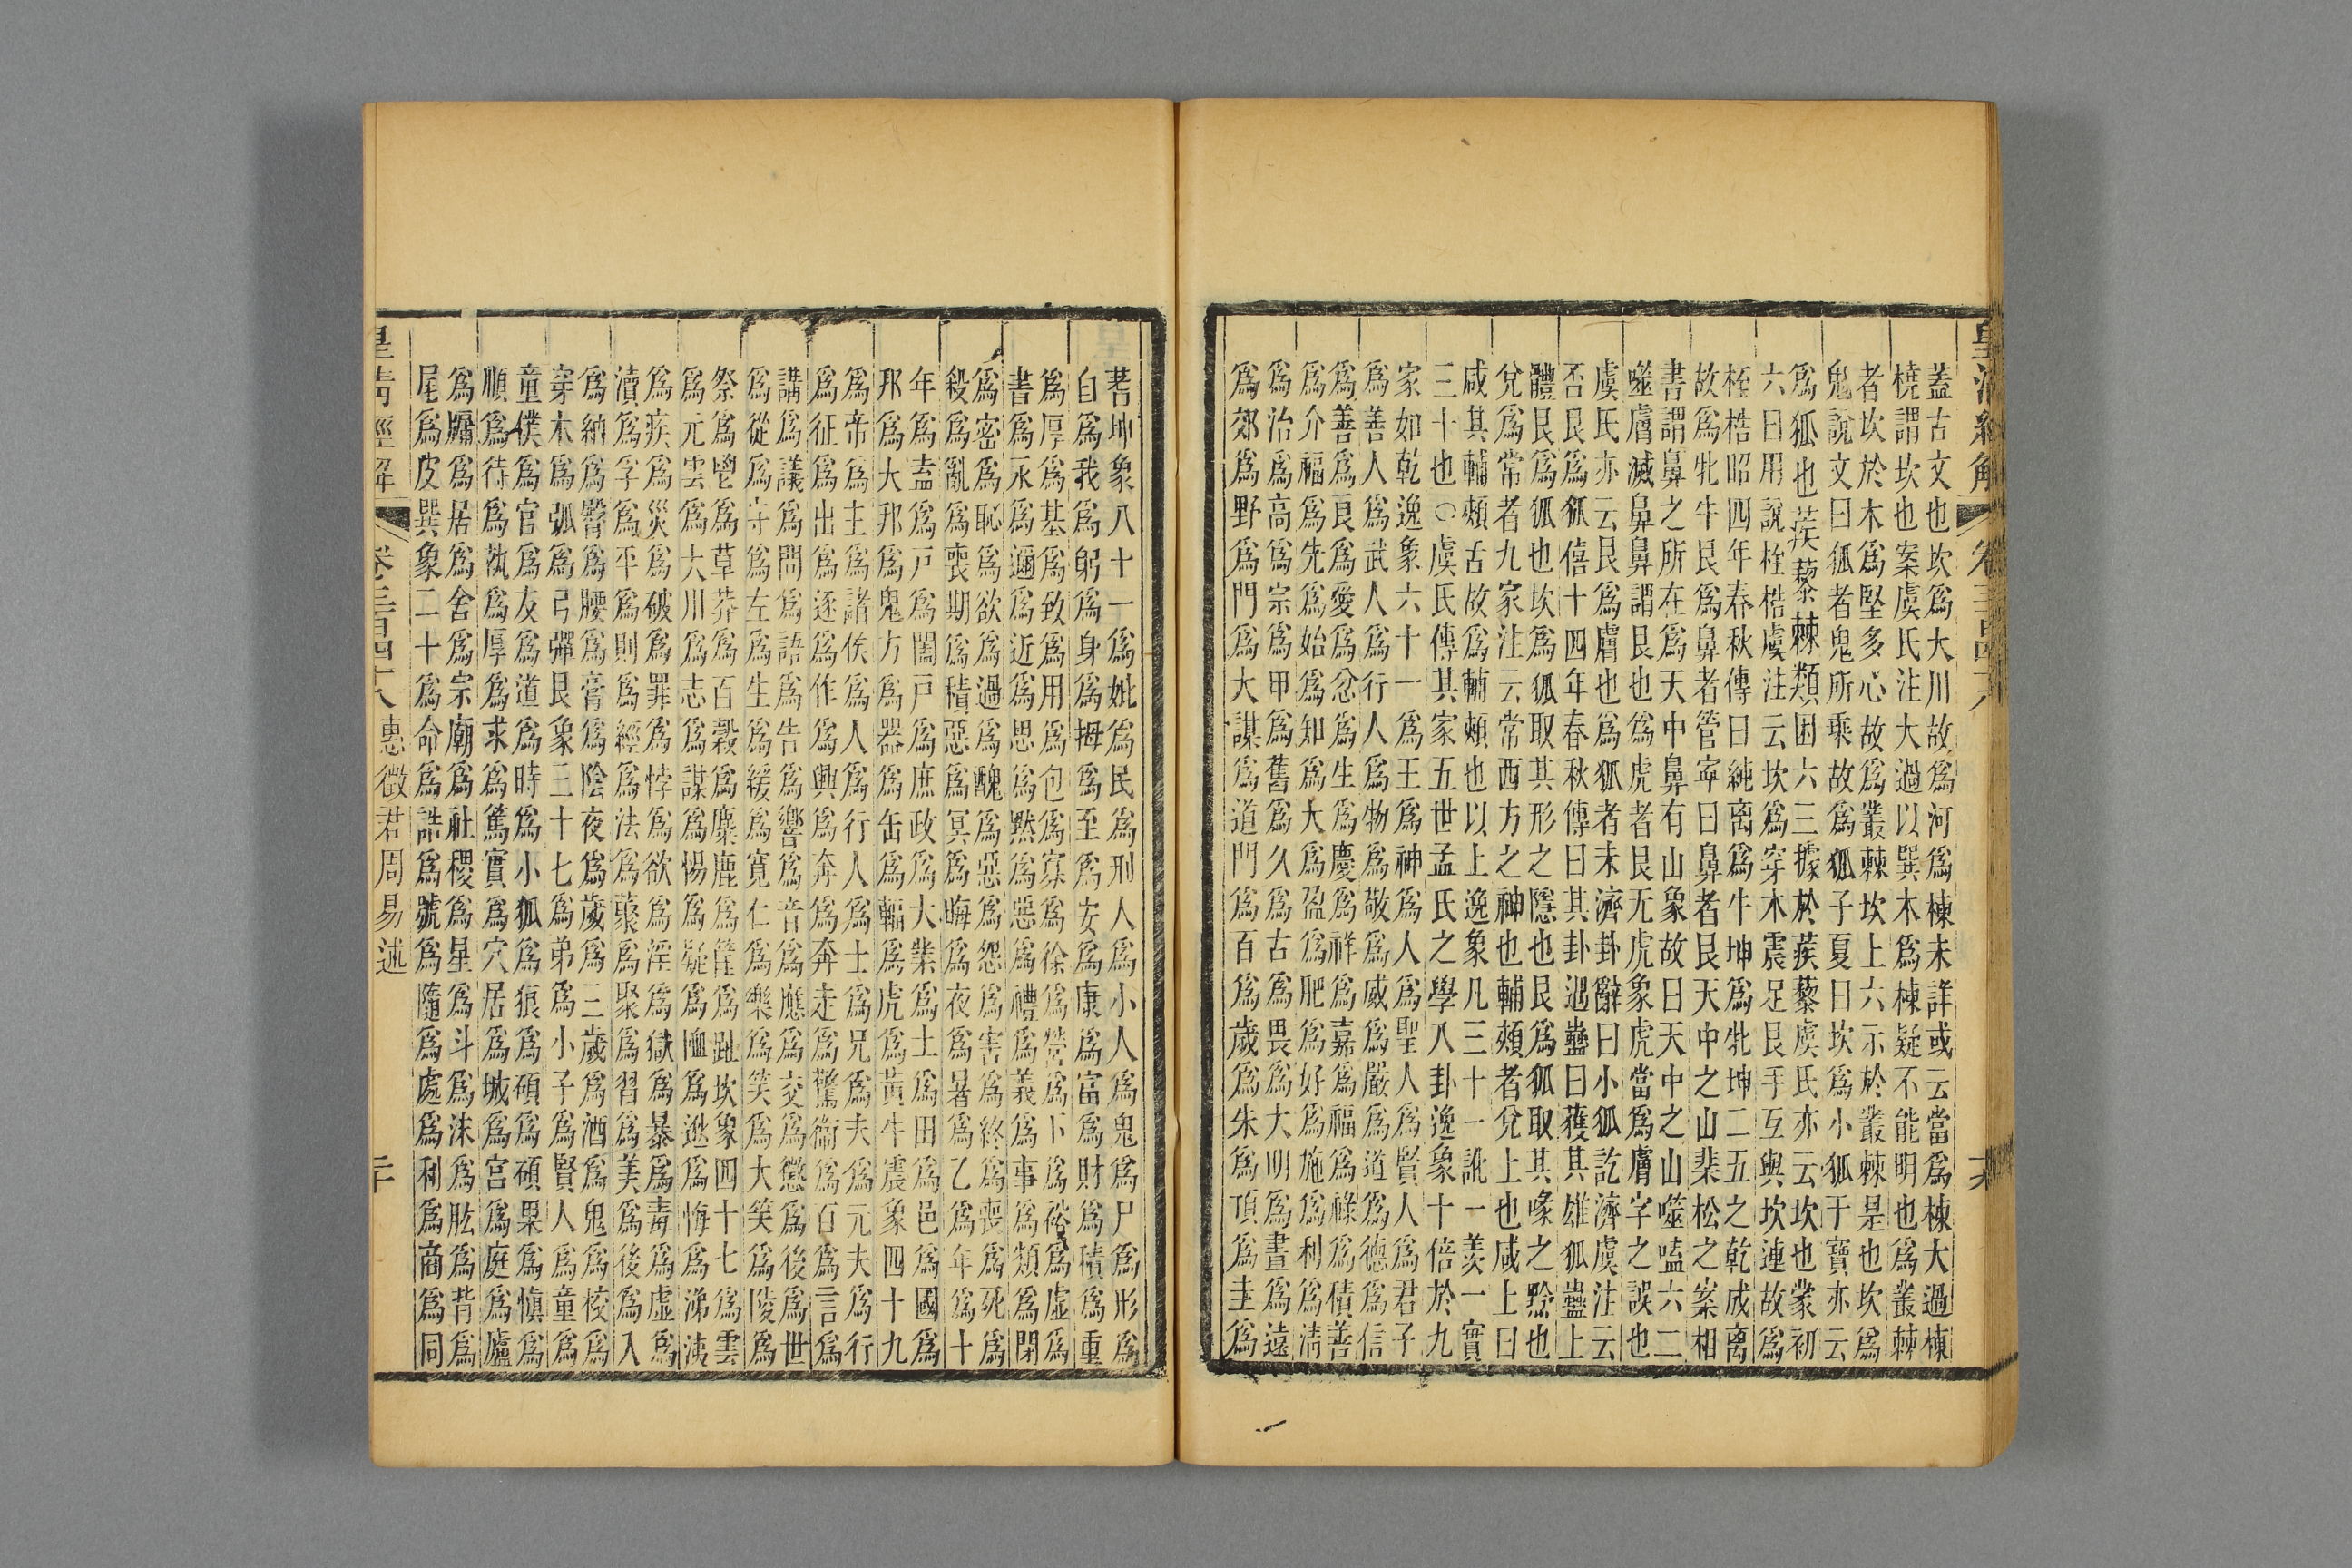 皇清經解 卷三百四十八
蓋古文也坎爲大川故爲河爲棟未詳或云當爲棟大過棟
橈謂坎也案虞氏注大過以巽木爲棟疑不能明也爲叢棘
者坎於木爲堅多心故爲叢棘坎上六示於叢棘是也坎爲
鬼說文曰狐者鬼所乘故爲狐子夏曰坎爲小狐于寶亦云
爲狐也蒺藜棘類困六三據於蒺藜虞氏亦云坎也蒙初
六曰用說桎梏虞注云坎爲穿木震足艮手互與坎連故爲
桎梏昭四年春秋傳曰純离爲牛坤爲牝坤二五之乾成离
故爲牝牛艮爲鼻者管寍曰鼻者艮天中之山裴松之案相
書謂鼻之所在爲天中鼻有山象故曰天中之山噬嗑六二
噬膚滅鼻鼻謂艮也爲虎者艮无虎象虎當爲膚字之誤也
虞氏亦云艮爲膚也爲狐者未濟卦辭曰小狐訖濟虞注云
否艮爲狐僖十四年春秋傳曰其卦遇蠱曰獲其雄狐蠱上
體艮爲狐也坎爲狐取其形之隱也艮爲狐取其喙之黔也
兌爲常者九家注云常西方之神也輔頰者兌上也咸上曰
咸其輔頰舌故爲輔頰也以上逸象凡三十一訛一羨一實
三十也〇虞氏傳其家五世孟氏之學八卦逸象十倍於九
家如乾逸象六十一爲王爲神爲人爲聖人爲賢人爲君子
爲善人爲武人爲行人爲物爲敬爲威爲嚴爲道爲德爲信
爲善爲良爲愛爲忿爲生爲慶爲祥爲嘉爲福爲祿爲積善
爲介福爲先爲始爲知爲大爲盈爲肥爲好爲施爲利爲淸
爲治爲高爲宗爲甲爲舊爲久爲古爲畏爲大明爲晝爲遠
爲郊爲野爲門爲大謀爲道門爲百爲歲爲朱爲頂爲圭爲
蓍坤象八十一爲妣爲民爲刑人爲小人爲鬼爲尸爲形爲
自爲我爲躬爲身爲拇爲至爲安爲康爲富爲財爲積爲重
爲厚爲基爲致爲用爲包爲寡爲徐爲營爲下爲裕爲虛爲
書爲永爲邇爲近爲思爲黙爲惡爲禮爲義爲事爲類爲閉
爲密爲恥爲欲爲過爲醜爲惡爲怨爲害爲終爲喪爲死爲
殺爲亂爲喪期爲積惡爲冥爲晦爲夜爲暑爲乙爲年爲十
年爲盍爲戸爲闔戸爲庶政爲大業爲土爲田爲邑爲國爲
邦爲大邦爲鬼方爲器爲缶爲輻爲虎爲黃牛震象四十九
爲帝爲主爲諸侯爲人爲行人爲士爲兄爲夫爲元夫爲行
爲征爲出爲逐爲作爲興爲奔爲奔走爲驚衛爲百爲言爲
講爲議爲問爲語爲告爲響爲音爲應爲交爲懲爲後爲世
爲從爲守爲左爲生爲緩爲寬仁爲樂爲笑爲大笑爲陵爲
祭爲鬯爲草莽爲百穀爲麋鹿爲筐爲趾坎象四十七爲雲
爲元雲爲大川爲志爲謀爲惕爲疑爲恤爲逖爲悔爲涕洟
爲疾爲災爲破爲罪爲悖爲欲爲淫爲獄爲暴爲毒爲虛爲
瀆爲孚爲平爲則爲經爲法爲藂爲聚爲習爲美爲後爲入
爲納爲臀爲腰爲膏爲陰夜爲歲爲三歲爲酒爲鬼爲校爲
穿木爲弧爲弓彈艮象三十七爲弟爲小子爲賢人爲童爲
童僕爲官爲友爲道爲時爲小狐爲狼爲碩爲碩果爲愼爲
順爲待爲執爲厚爲求爲篤實爲穴居爲城爲宮爲庭爲廬
爲牖爲居爲舍爲宗廟爲社稷爲星爲斗爲沬爲肱爲背爲
尾爲皮巽象二十爲命爲誥爲號爲隨爲處爲利爲商爲同
皇清經解 卷三百四十八 惠徵君周易述 二十